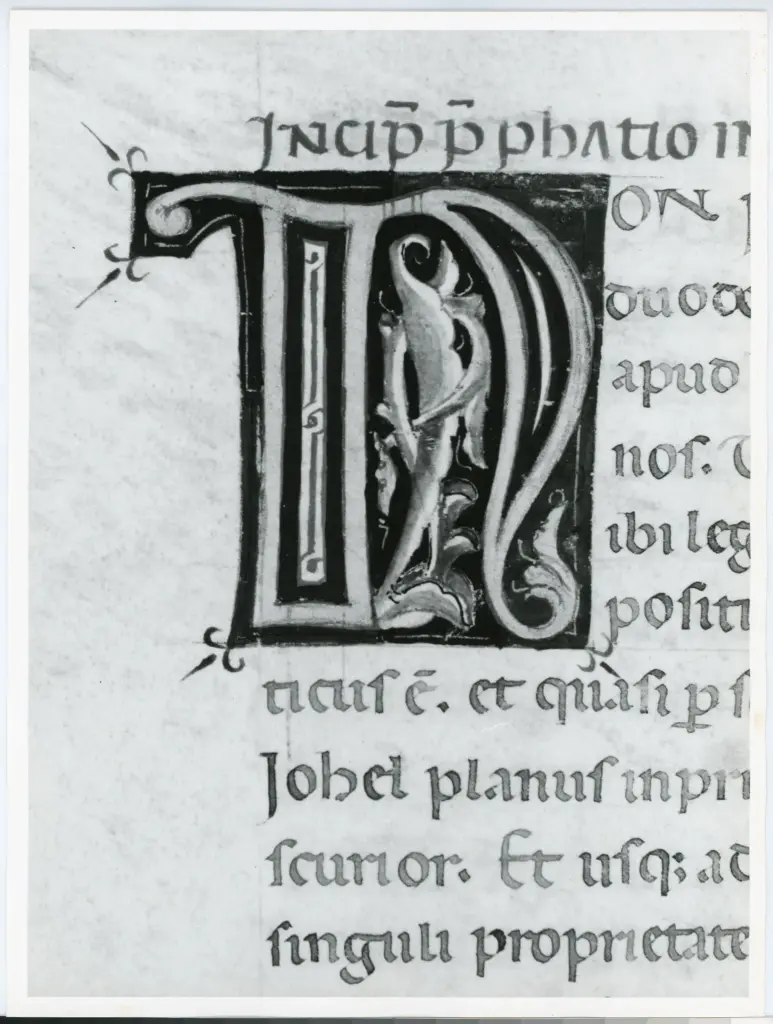 INCIP̄ P̄ PHATIO IN
NON
duode
apud
noſ.
ibi leg
poſiti
ticuſ ē. et quaſi ꝑ ſ
Johel planuſ in pri
ſcurior. Et uſq; ad
ſinguli proprietate